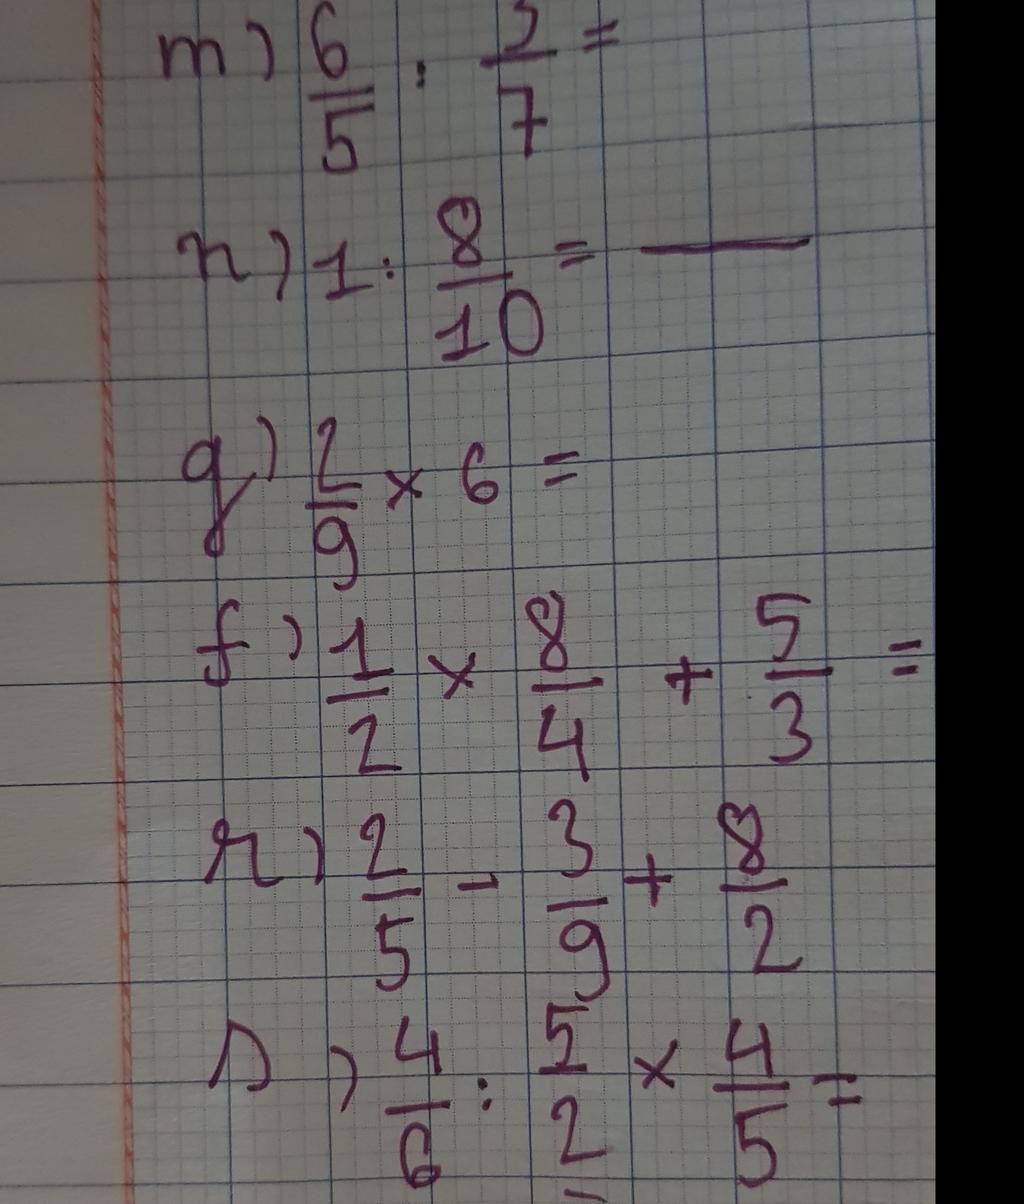 m) 6/5 : /7 =
n) 1 : 8/10 =
q) 2/9 × 6 =
f) 1/2 × 8/4 + 5/3 =
r) 2/5 - 3/9 + 8/2
s) 4/6 : 5/2 × 4/5 =